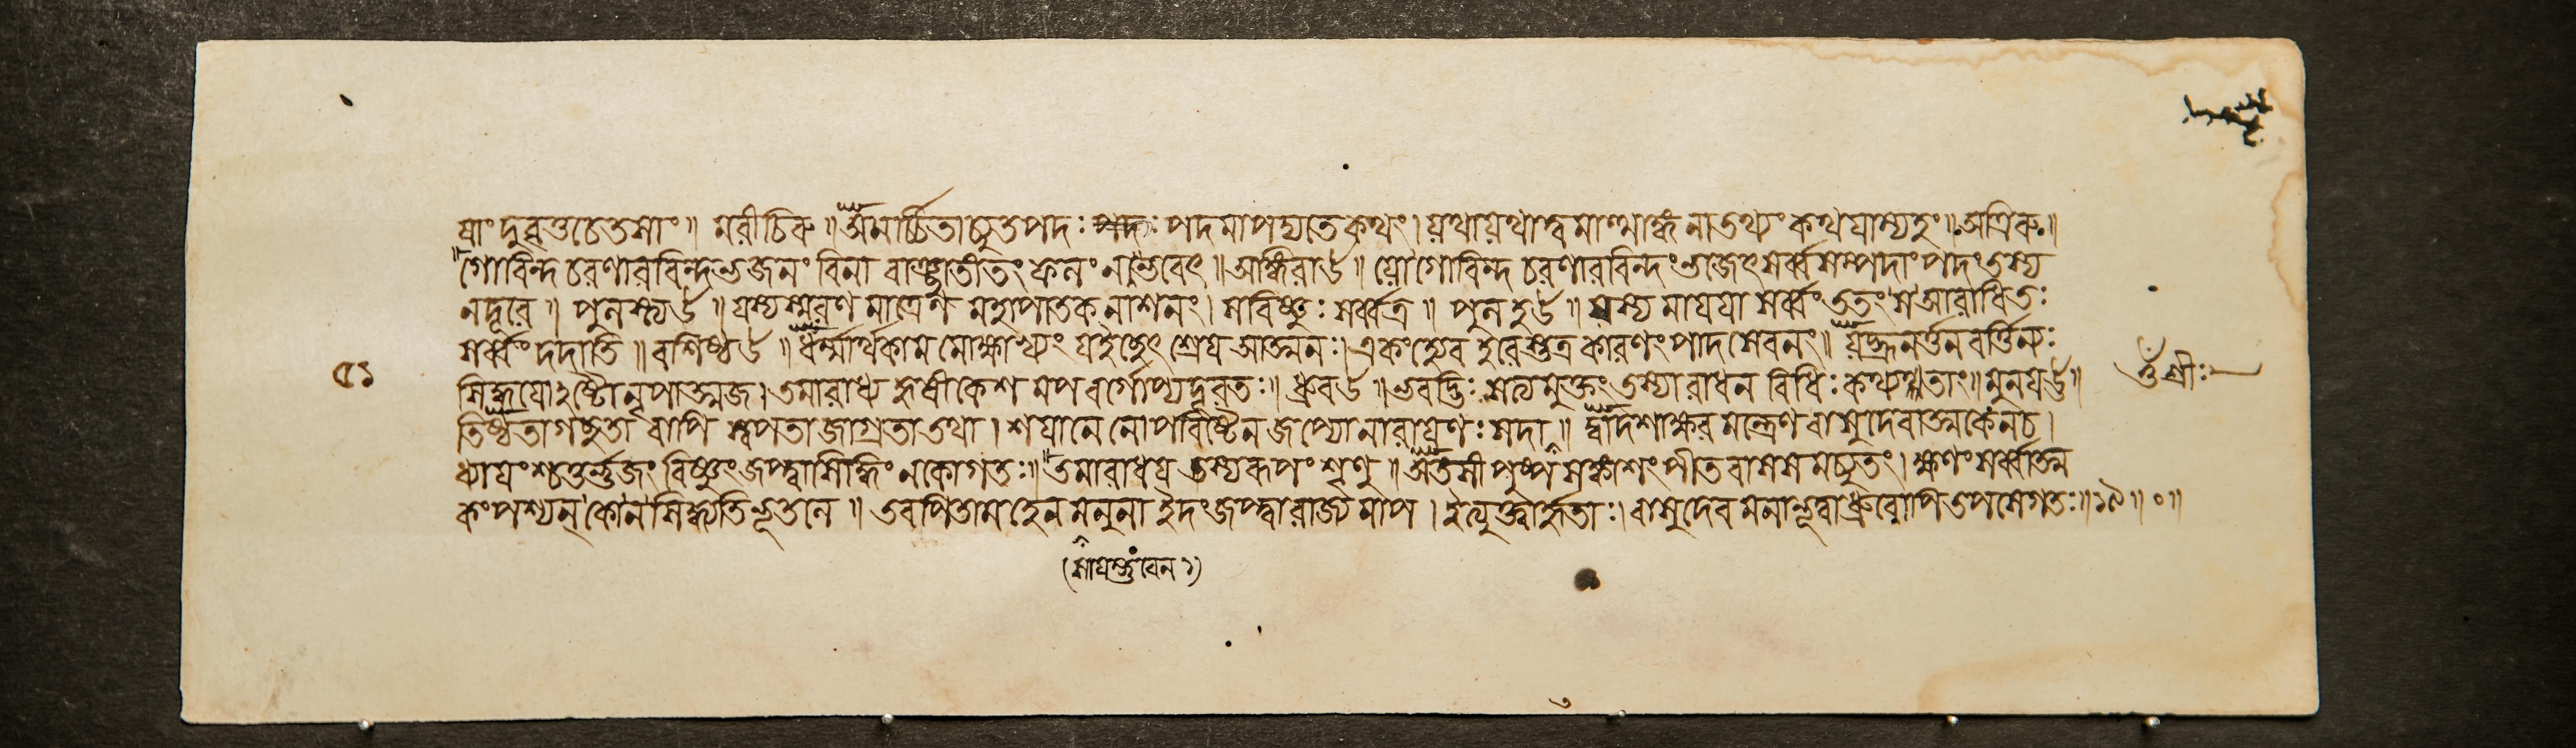 ষাং দুরূহতচেতসাং॥ মরীচিরু॥ অনার্চ্চিতাচ্যুতপদঃ পদমাপদ্যতে কথং। যথাযথাত্মমাশ্মাকং নাতথ্যং কথযাম্যহং॥ অত্রিরু॥
গোবিন্দ চরণারবিন্দভজনং বিনা বাঞ্ছাতীতং ফলং নাভবেৎ॥ অঙ্গিরাউ॥ যো গোবিন্দ চরণারবিন্দং ভজেৎ সর্ব্বসম্পদাং পদং তস্য
নদূরে॥ পুলস্ত্যউ॥ যস্যস্মরণ মাত্রেণ মহাপাতক নাশনং। স বিষ্ণুঃ সর্ব্বত্র॥ পুলহউ॥ যস্য মাযযা সর্ব্বং ততং স আরাধিতঃ
সর্ব্বং দদাতি॥ বশিষ্ঠউ॥ ধর্ম্মার্থকাম মোক্ষাখ্যং যইচ্ছেৎ শ্রেয আত্মনঃ। একং হ্যেব হরেস্তত্র কারণং পাদসেবনং॥
৫১
সিদ্ধযো নৃপাত্মজ। তমারাধ্য হৃষীকেশ মপবর্গোপ্যদূরতঃ॥ ধ্রুবউ॥ ভবদ্ভিঃ সত্যমুক্তং তস্যারাধন বিধিঃ কথ্যতাং॥ মুনযউ॥
ওঁ শ্রীঃ
তিষ্ঠতা গচ্ছতা বাপি স্বপতা জাগ্রতা তথা। শযানে নোপবিষ্টেন জপ্যো নারাযণঃ সদা॥ দ্বাদশাক্ষর মন্ত্রেণ বাসুদেবাত্মকেনচ।
ধ্যাযংশ্চতুর্ভুজং বিষ্ণুং জপ্ত্বা সিদ্ধিং ন কো গতঃ॥ তমারাধয তস্যরূপং শৃণু॥ অতসী পুষ্প সঙ্কাশং পীতবাসস মচ্যুতং। ক্ষণং সর্ব্বাত্ম
কং পশ্যন্ কো ন সিদ্ধ্যতি ভূতলে॥ তবপিতামহেন মনুনা ইদং জপ্ত্বা রাজ্যমাপ। ইত্যুক্ত্বা। বাসুদেব মনা ভূত্বা ধ্রুবোপি তপসে গতঃ॥১৯॥০॥
(সাযম্ভুবেন১)